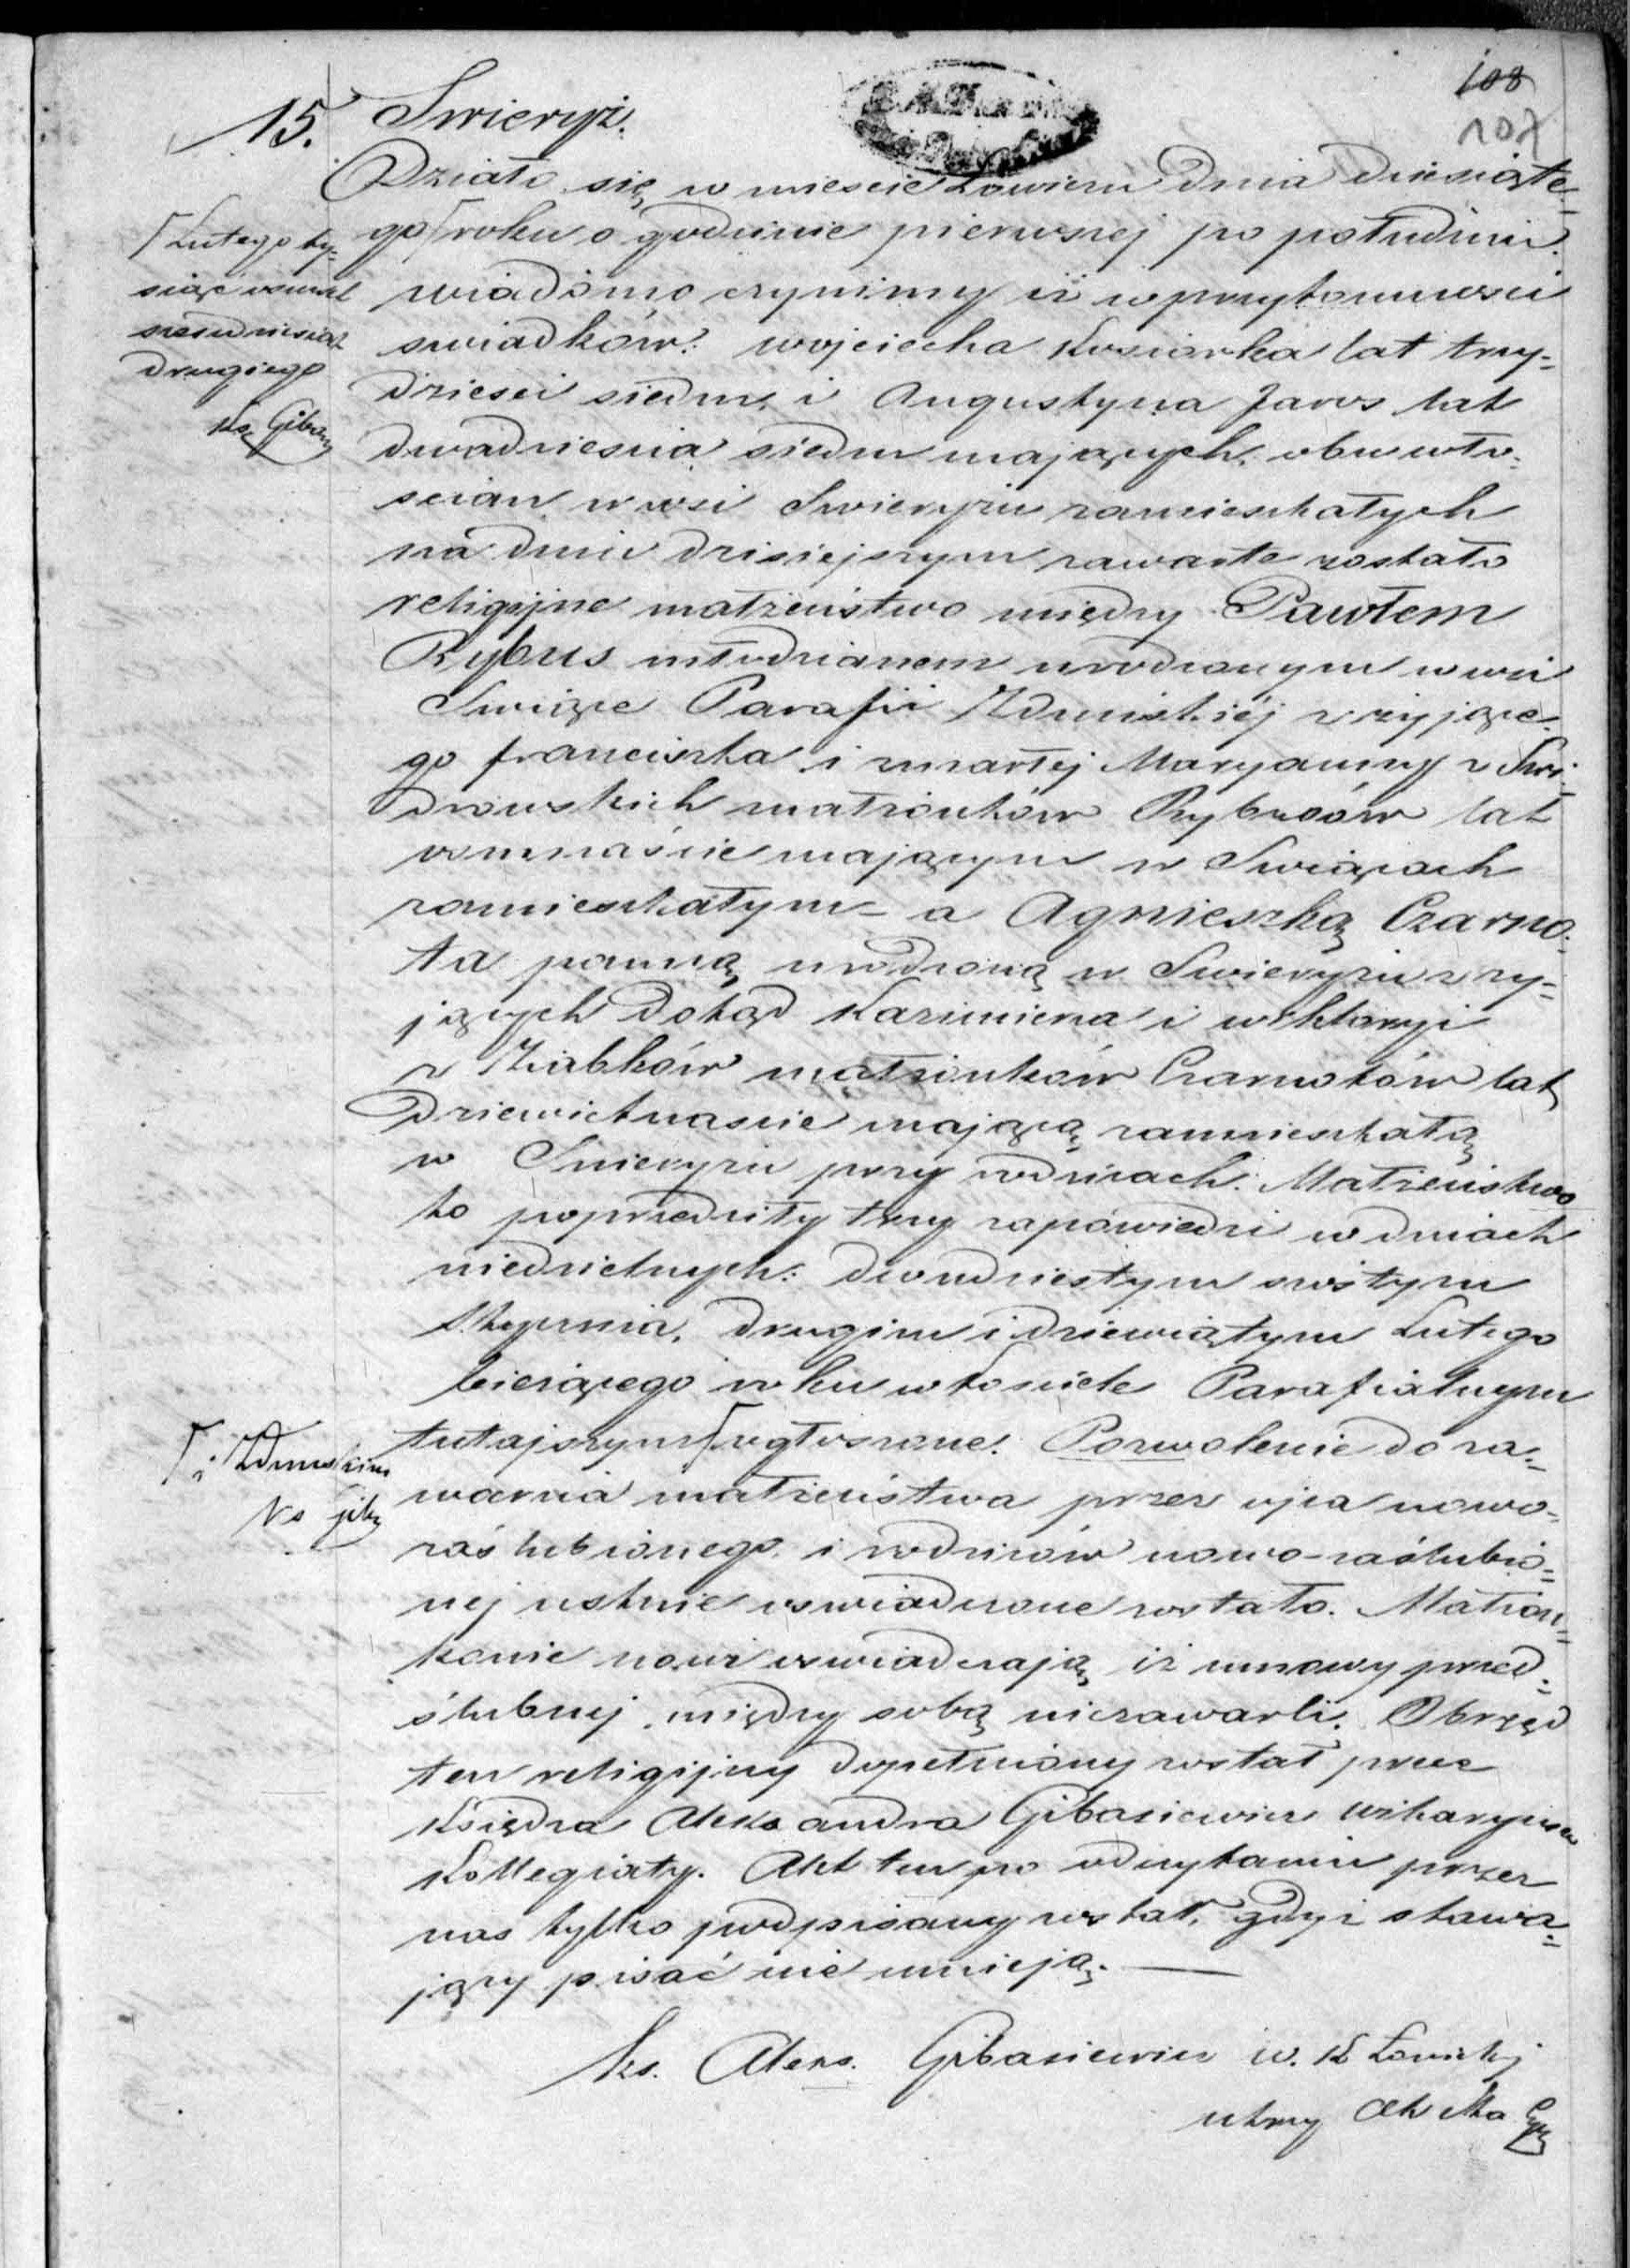 108
107
15. Swieryż.
Działo się w mieście Łowiczu dnia dziesiąte-
go roku o godzinie pierwszej po południu.
Lutego ty-
siąc osmset
sześćdziesiąt
drugiego
Ks. Gibas
wiadomo czynimy iż w przytomności
swiadków: wojciecha Kosiorka lat trzy-
dzieści siedm, i Augustyna Jaros lat
dwadzieścia siedm mających. obu wło-
scian w wsi Swieryżu zamieszkałych
na dniu dzisiejszym zawarte zostało
religijne małżeństwo między Pawłem
Rybus młodzianem urodzonym w wsi
Swiące Parafii Zduńskiéj z żyjące-
go franciszka i zmarłej Maryanny z Swi-
drowskich małżonków Rybusów lat
osmnaście mającym w Swiącach
zamieszkałym - a Agnieszką Czarno-
ta panną urodzoną w Swieryżu z ży-
jących dotąd Kazimierza i wiktoryi
z Ziabków małżonków Czarnotów lat
dziewietnaście mającą zamieszkałą
w Swieryżu przy rodzicach. Małżeństwo
to poprzedziły trzy zapowiedzi w dniach
niedzielnych: dwudziestym szóstym
Stycznia, drugim i dziewiątym Lutego
bieżącego roku w kosciele Parafialnym
tutajszym ogłoszone. Pozwolenie do za-
i Zduńskim
Ks Giba
warcia małżeństwa przez ojca nowo-
zaślubionego i rodziców nowo-zaślubio-
nej ustnie oswiadczone zostało. Małżon-
kowie nowi oswiadczają iż umowy przed-
ślubnej między sobą niezawarli. Obrzęd
ten religijny dopełniony został przez
Księdza Aleksandra Gibasiewicz wikaryusza
Kollegiaty. Akt ten po odczytaniu przez
nas tylko podpisany został, gdyż stawa-
jący pisać nie umieją.
Ks. Aleks. Gibasiewicz w. K Łowickiej
utrzy Akta